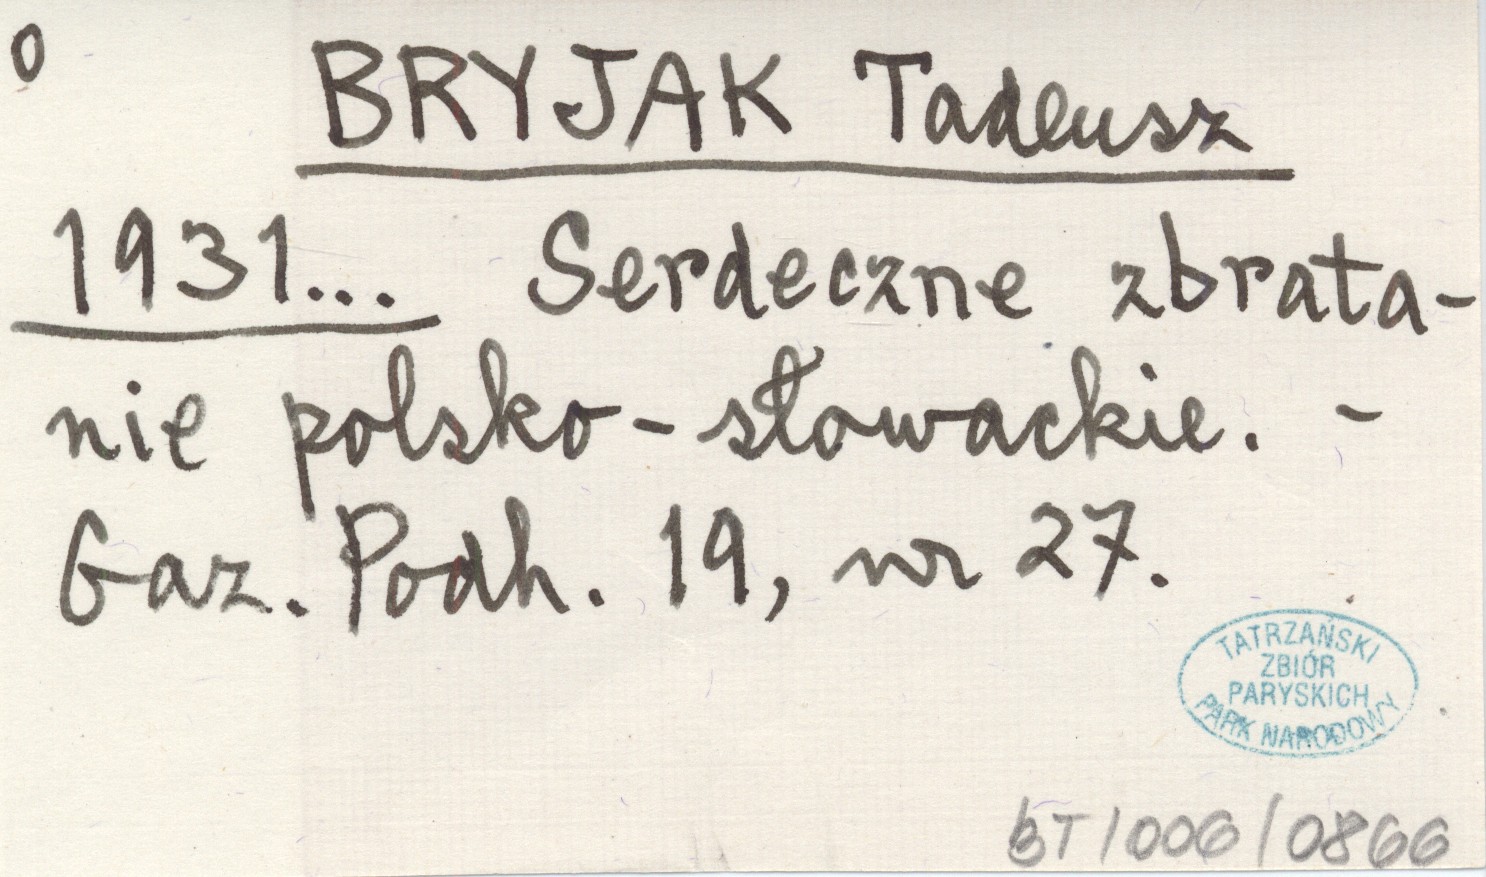 o
BRYJAK Tadeusz
1931... Serdeczne zbrata-
nie polsko-słowackie. -
Gaz. Podh. 19, nr 27.
TATRZAŃSKI
ZBIÓR
PARYSKICH
PARK NARODOWY
BT/006/0866